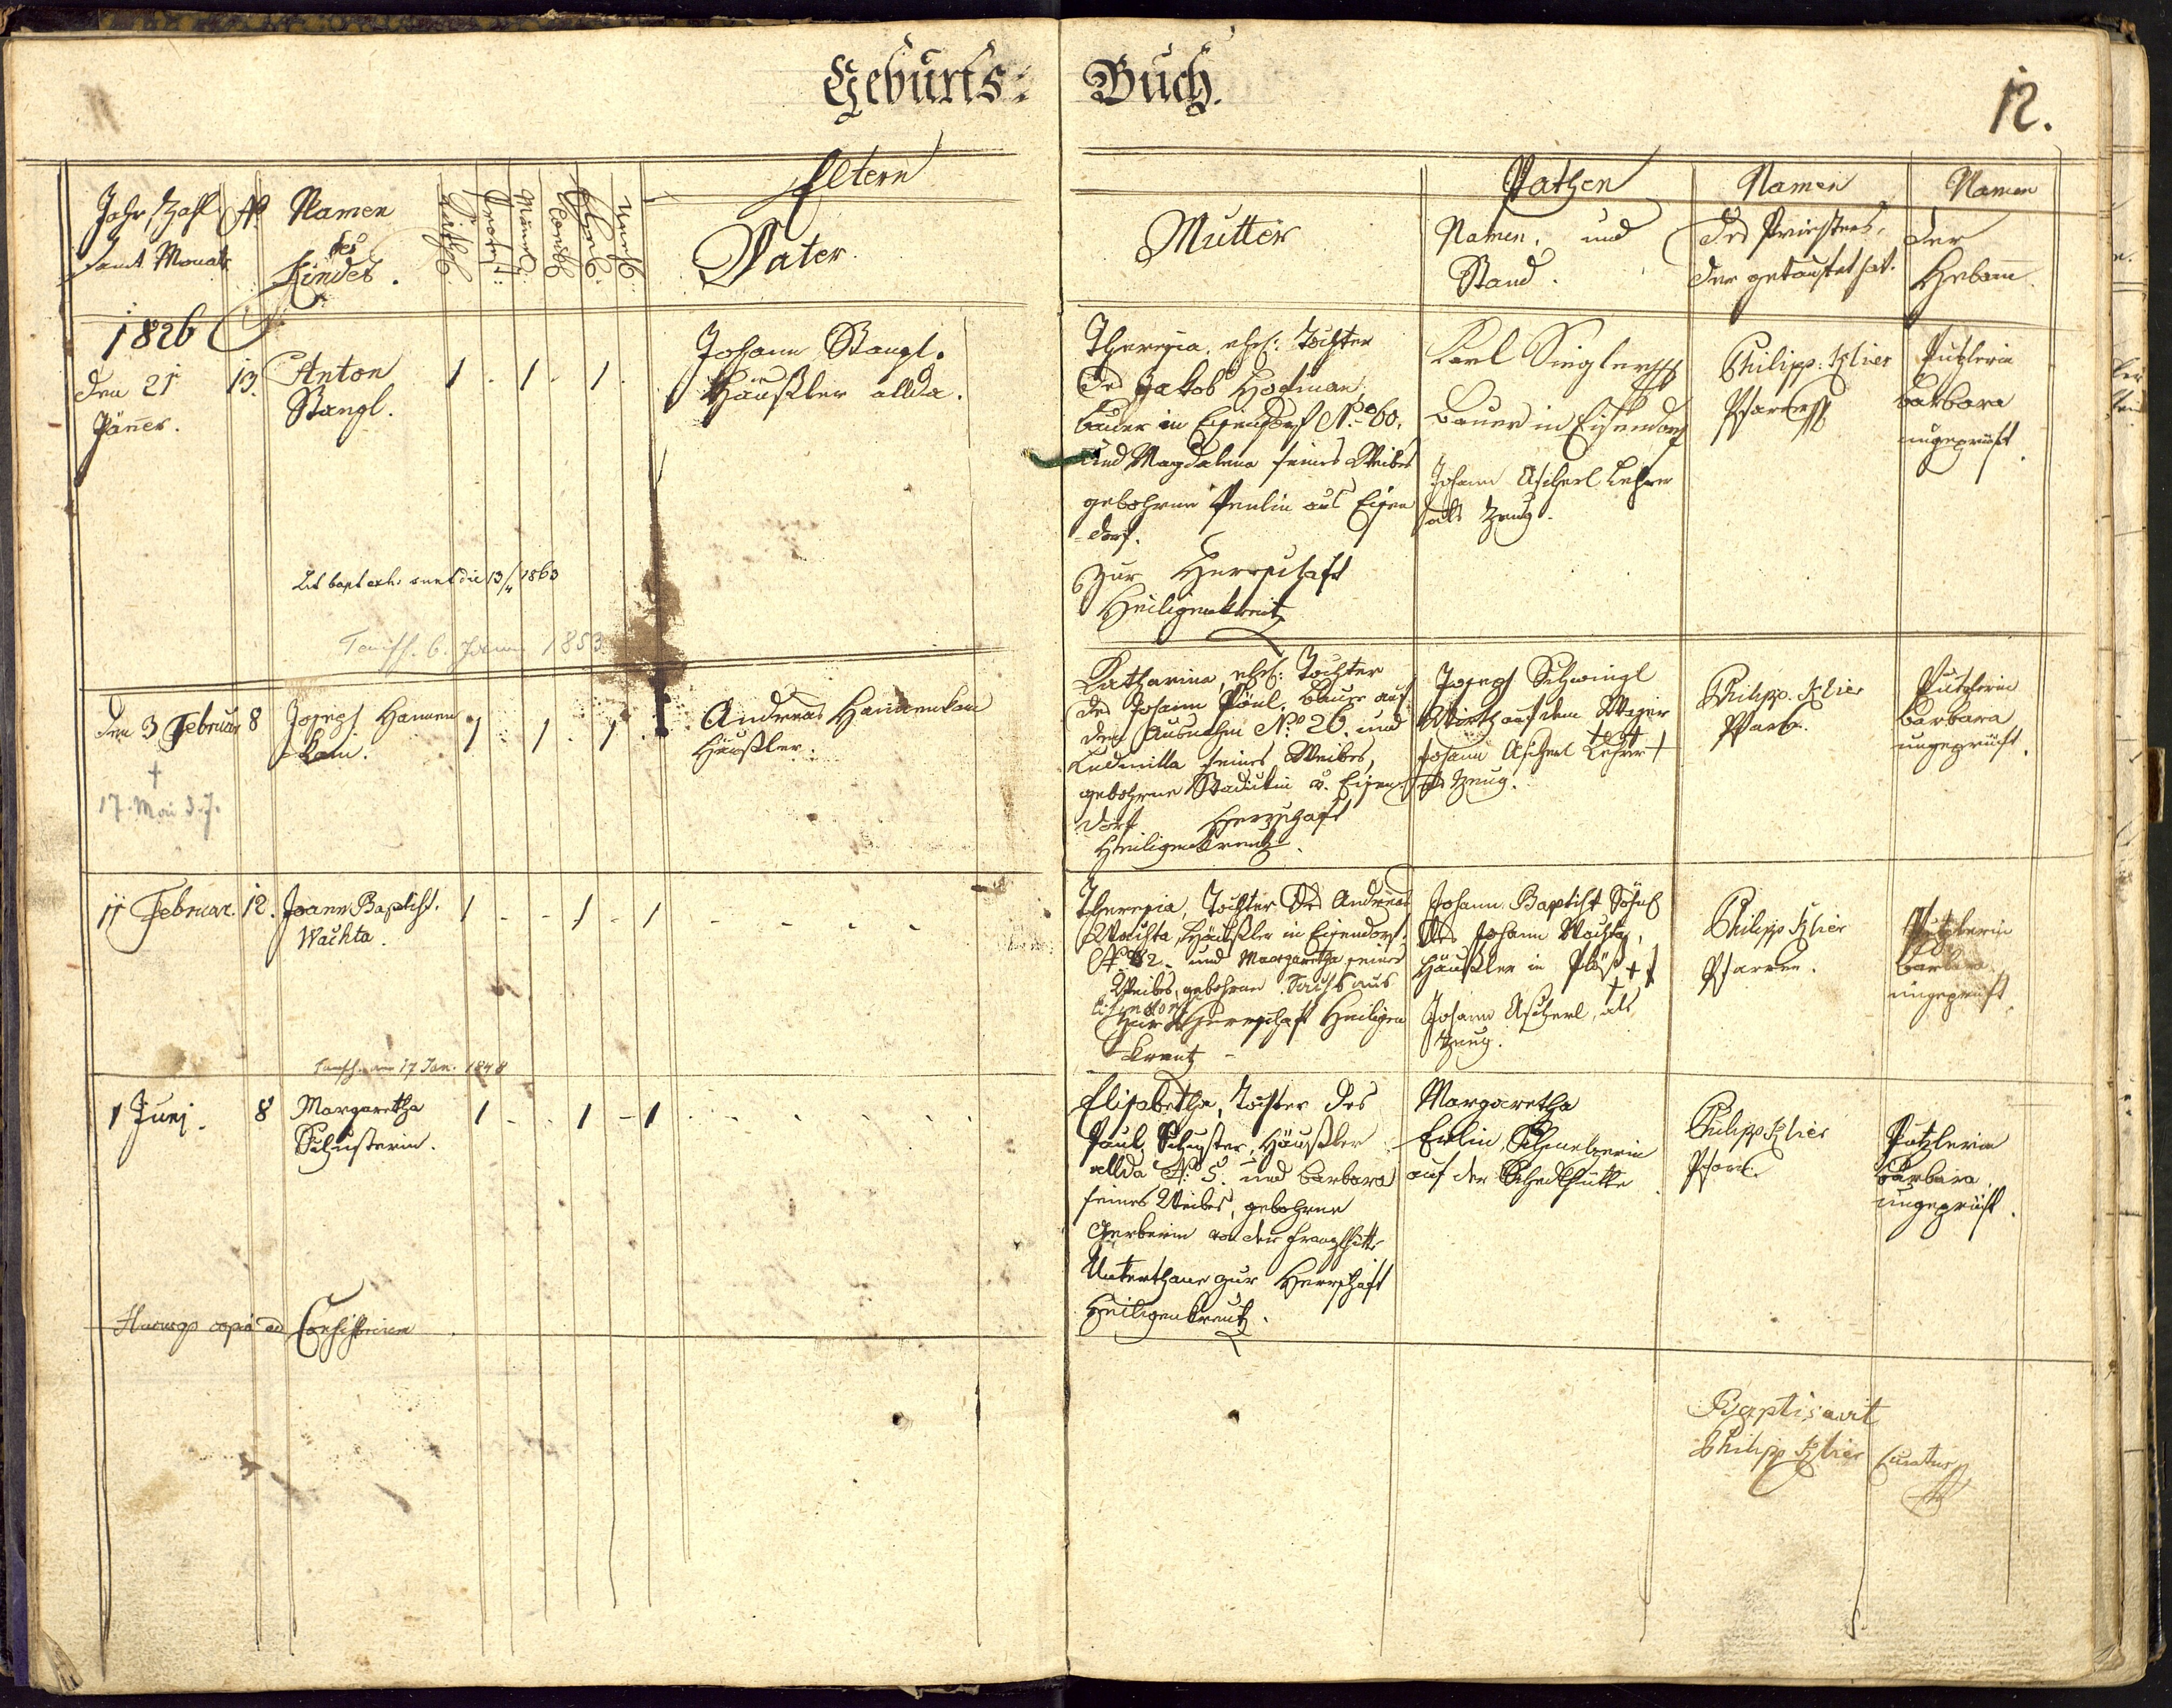 Geburts= Buch.
12.
Eltern
Jahr, Zahl
samt Monats
No
Namen
des
Kindes.
Kathol.
Protest:
Männl:
Weibl.
Ehel.
Unehl.
Vater.
Mutter
Pathen
Namen, und
Stand.
Namen
des Priesters,
der getaufet hat.
Namen
der
Hebam̄
1826
den 21
Jäñer.
13.
Anton
Stangl.
1 . 1 . 1 .
Johann Stangl.
Häußler allda.
Theresia, ehel: Tochter
des Jakob Hodman,
bauer in Eisendorf No 60.
und Magdalena seines Weibes
gebohrne Penlin aus Eisen
=dorf.
Zur Herrschaft
Heiligenkreutz
Karl Siegler
bauer in Eisendorf
Johann Ascherl Lehrer
als Zeug.
Philipp Klier
Pfarrer
Putzlerin
barbara
ungeprüft.
13/4 1863
6. 1853
den 3 Februar
†
17. Mai d. J.
8
Joseph Hannen
=kam.
1 . 1 . 1 .
Andreas Hannenkam
Häußler.
Katharina, ehel: Tochter
des Johann Pönl, bauer auf
den No 26. und
Ludmilla seines Weibes,
gebohrne Stadukin a. Eisen=
dorf Herrschaft
Heiligenkreutz.
Joseph Schwingl
Wirth auf dem
†††
Johann Ascherl Lehrer
als Zeug.
Philipp Klier
Pfarr.
Putzlerin
barbara
ungeprüft.
11 Februar.
12.
Joann Baptist.
Wachta.
1 - - 1 - 1 - - - -
Theresia, Tochter des Andreas
Wachta, Häußler in Eisendorf
No 82. und Margaretha seines
Weibes, gebohrne Sachs aus
Eisendorf
Zur Herrschaft Heiligen
=kreutz -
Johann Baptist Söhnl
des Johann Wachta,
Häußler in Plöß †††
Johann Ascherl, als
Zeug.
Philipp Klier
Pfarrer.
Putzlerin
barbara
ungeprüft.
17 Jan. 1848
1 Junj.
8
Margaretha
Schusterin.
1 - . 1 - 1 . - . . . .
Elisabetha, Tochter des
Paul Schuster, Häußler
allda No 5. und barbara
seines Weibes, gebohrne
Gerberin von der
Unterthane zur Herrschaft
Heiligenkreutz.
Margaretha
Erlin Schmelzerin
auf der
Philipp Klier
Pfarr.
Putzlerin
barbara
ungeprüft.
copia ad Consistorium
Baptisavit
Philipp Klier Curatus